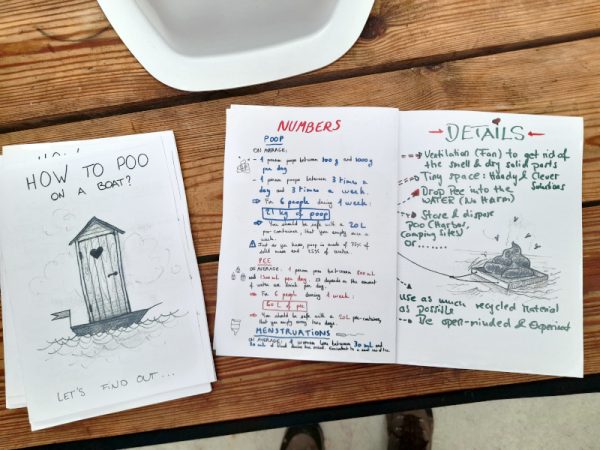 HOW TO POO
ON A BOAT?
LET'S FIND OUT...
NUMBERS
POOP
ON AVERAGE:
1 person poops between 300g and 1000g
per day
1 person poops between 3 times a
day and 3 times a week.
For 6 people during 1 week:
21 kg of poop
You should be safe with a 20L
pee-container, that you empty once a
week.
Just so you know, poop is made of 75% of
solid mass and 25% of water.
PEE
ON AVERAGE: 1 person pees between 800 mL
and 1500 mL per day. It depends on the amount
of water we drink per day.
For 6 people during 1 week:
60 L of pee
You should be safe with a 20L pee-container
that you empty every two days.
MENSTRUATIONS
ON AVERAGE: 1 woman loses between 30 mL and
DETAILS
Ventilation (Fan) to get rid of
the smell & dry solid parts
Tiny space: Handy & Clever
Solutions
Drop Pee into the
WATER (No Harm)
Store & dispose
Poo (Harbor,
Camping Sites)
or
use as much recycled Material
as possible
Be open-minded & Experiment